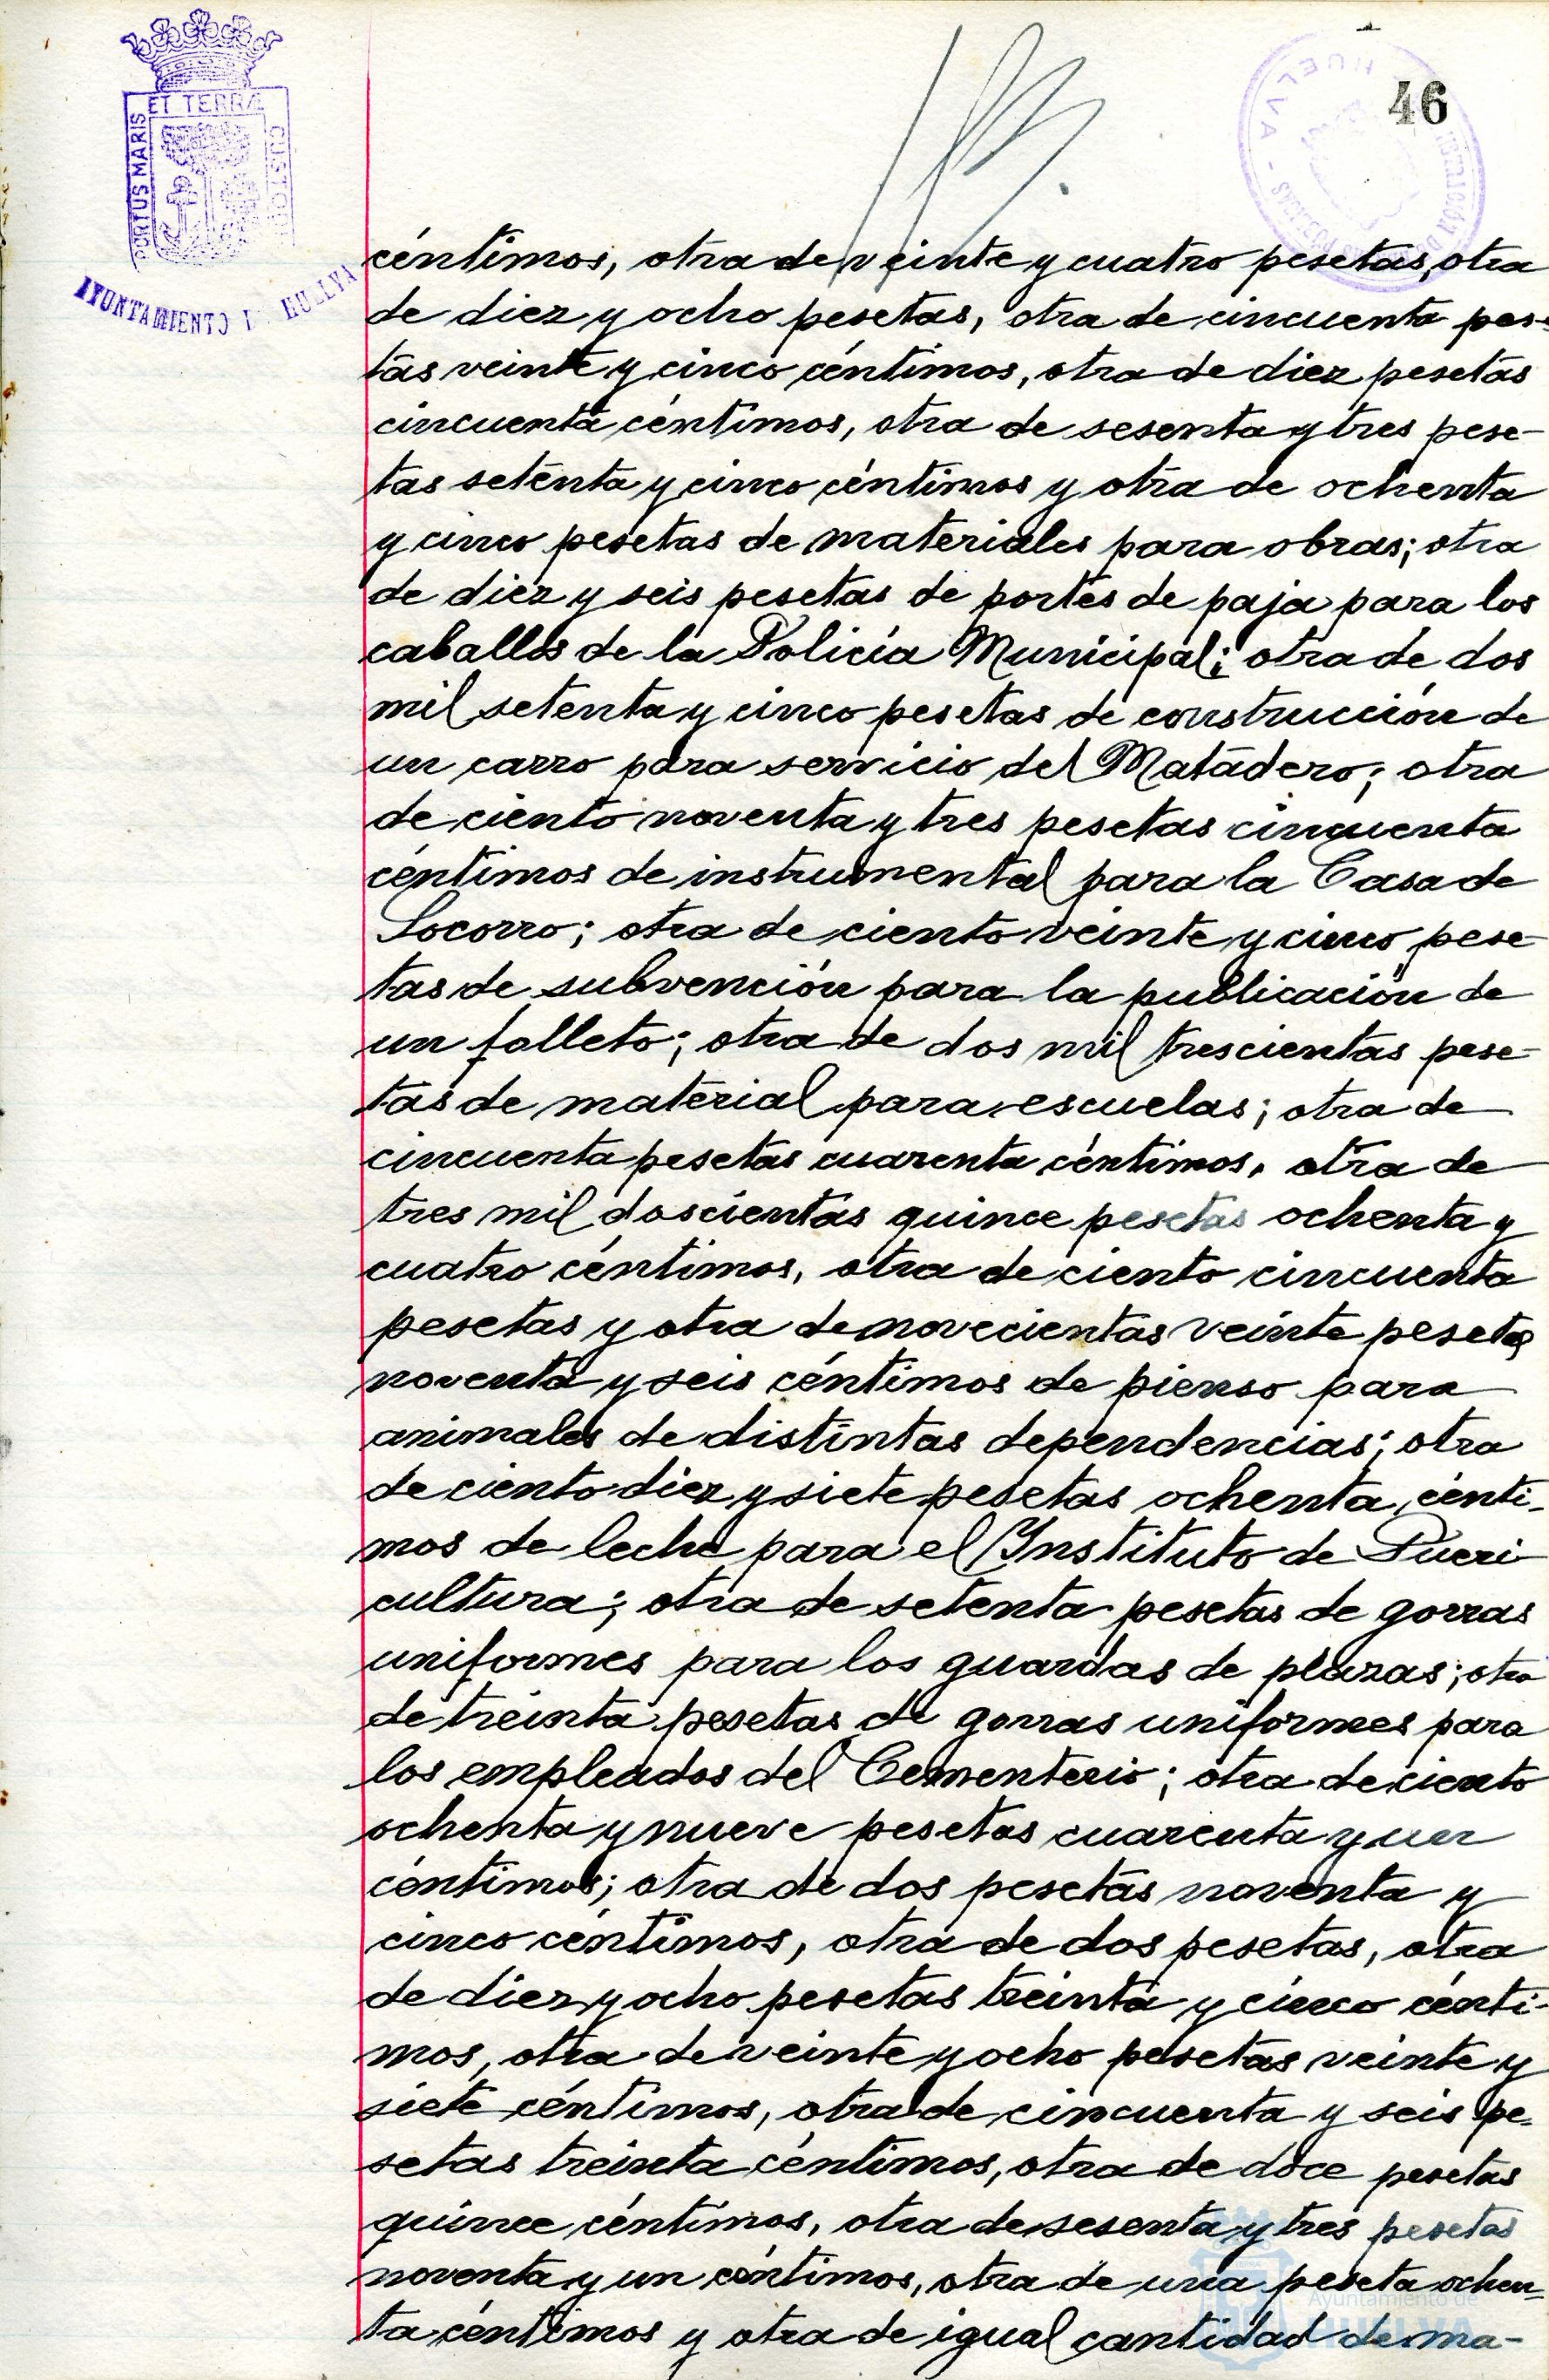 46
ET TERRÆ
PORTUS MARIS
CUSTODIA
AYUNTAMIENTO DE HUELVA
HUELVA
céntimos, otra de veinte y cuatro pesetas, otra
de diez y ocho pesetas, otra de cincuenta pese-
tas veinte y cinco céntimos, otra de diez pesetas
cincuenta céntimos, otra de sesenta y tres pese-
tas setenta y cinco céntimos y otra de ochenta
y cinco pesetas de materiales para obras; otra
de diez y seis pesetas de portes de paja para los
caballos de la Policía Municipal; otra de dos
mil setenta y cinco pesetas de construcción de
un carro para servicio del Matadero; otra
de ciento noventa y tres pesetas cincuenta
céntimos de instrumental para la Casa de
Socorro; otra de ciento veinte y cinco pese-
tas de subvención para la publicación de
un folleto; otra de dos mil trescientas pese-
tas de material para escuelas; otra de
cincuenta pesetas cuarenta céntimos, otra de
tres mil doscientas quince pesetas ochenta y
cuatro céntimos, otra de ciento cincuenta
pesetas y otra de novecientas veinte pesetas
noventa y seis céntimos de pienso para
animales de distintas dependencias; otra
de ciento diez y siete pesetas ochenta cénti-
mos de leche para el Instituto de Pueri-
cultura; otra de setenta pesetas de gorras
uniformes para los guardas de plazas; otra
de treinta pesetas de gorras uniformes para
los empleados del Cementerio; otra de ciento
ochenta y nueve pesetas cuarenta y un
céntimos; otra de dos pesetas noventa y
cinco céntimos, otra de dos pesetas, otra
de diez y ocho pesetas treinta y cinco cénti-
mos, otra de veinte y ocho pesetas veinte y
siete céntimos, otra de cincuenta y seis pe-
setas treinta céntimos, otra de doce pesetas
quince céntimos, otra de sesenta y tres pesetas
noventa y un céntimos, otra de una peseta ochen-
ta céntimos y otra de igual cantidad de ma-
Ayuntamiento de
HUELVA